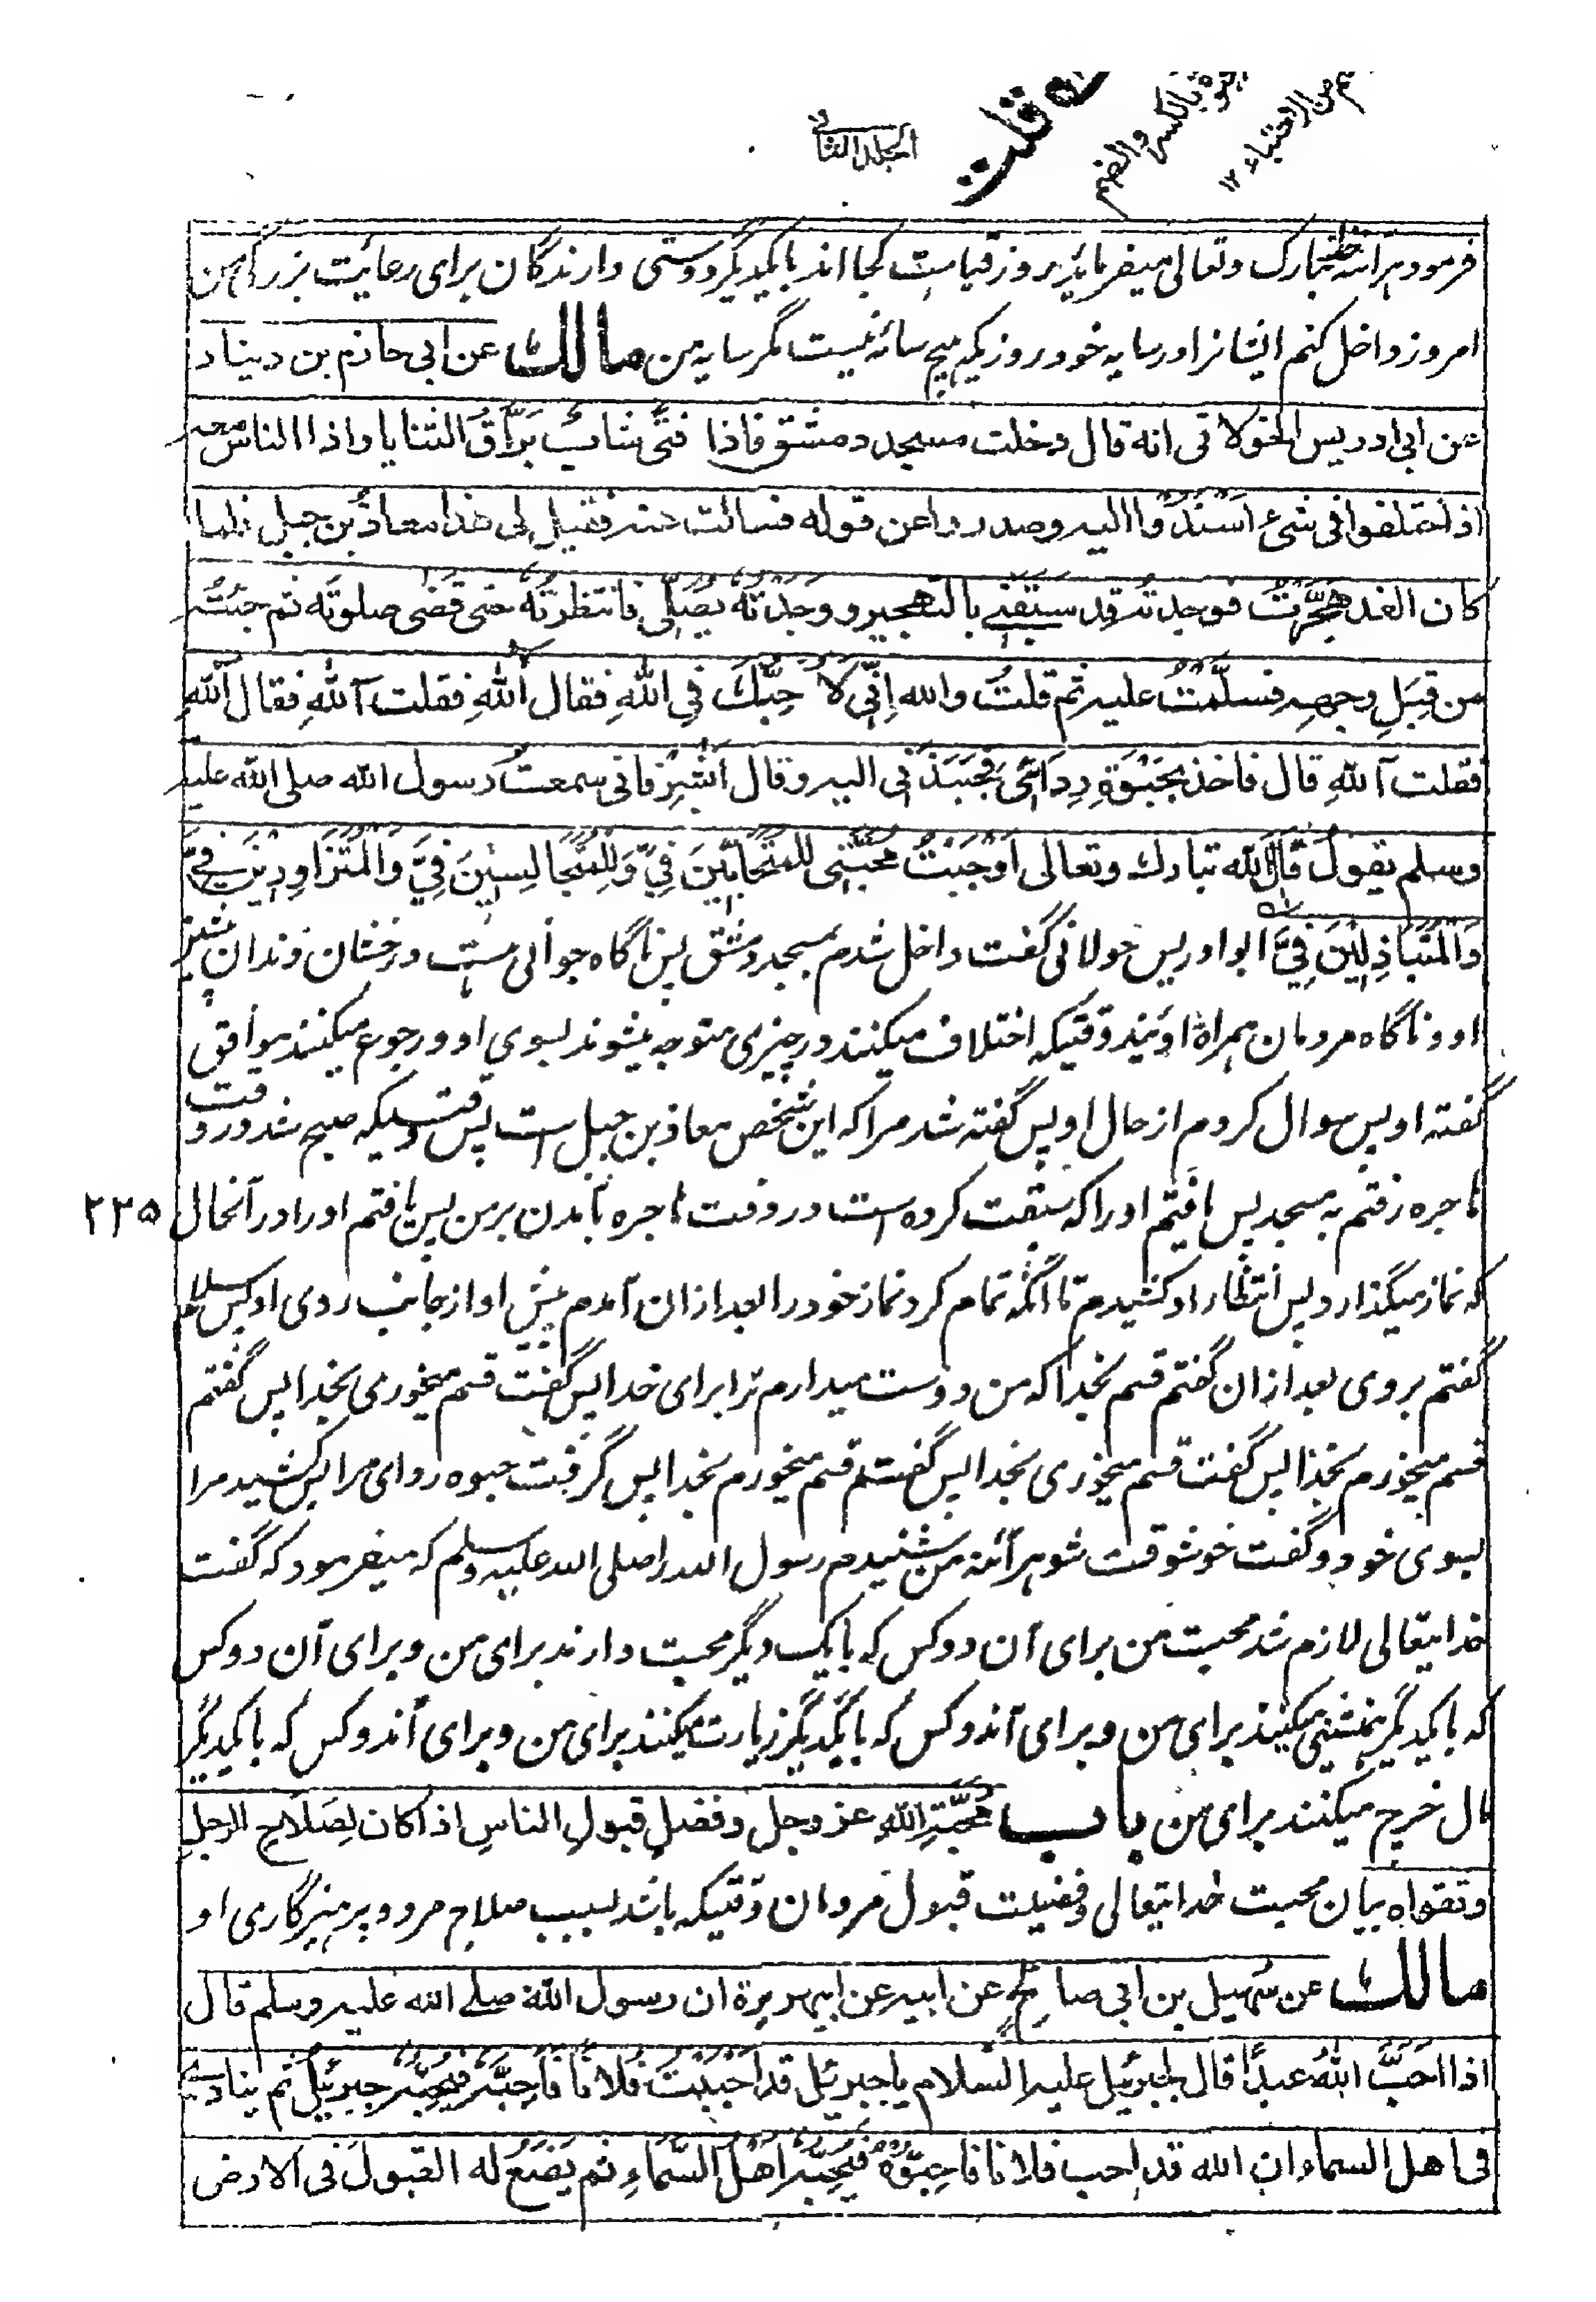 المجلد الثاني
قلت
بالكسر والضم
من الاحتباء ١٢
فرمود هرآئنه خدا تبارک وتعالی میفرماید بروز قیامت کجا اند با یکدیگر دوستی دارندگان برای رعایت بزرگی من
امروز داخل کنم ایشانرا در سایه خود روزیکه هیچ سائه نیست مگر سایه من مالك عن ابي حازم بن دينار
عن ابي ادريس الخولاني انه قال دخلت مسجد دمشق فاذا فتًى شابٌّ بَرَّاقُ الثنايا واذا الناس معه
اذا ختلفوا فى شئ اَسْنَدُوا اليه وصدروا عن قوله فسالت عنه فقيل لى هذا معاذُ بن جبل فلما
كان الغد هَجَّرْتُ فوجدته قد سبقنے بالتهجير ووجدتُه يُصَلِّى فانتظرتُه حتى قضى صلوتَه ثم جئتُه
من قِبَلِ وجهِه فسلَّمتُ عليه ثم قلتُ والله اِنِّى لاُحِبُّكَ فِى اللهِ فقال آللهِ فقلت آللهِ فقال آللهِ
فقلت آللهِ قال فاخذ بحَبْوَةِ رِدَائى فجَبَذَنى اليه وقال اَبْشِرْ فانى سمعتُ رسول الله صلى الله عليه
وسلم يقول قال الله تبارك وتعالى اَوْجَبْتُ مَحَبَّتِى للمتحَابِّيْنَ فِيَّ وَلِلْمُتَجَالِسِيْنَ فِيَّ وَالْمُتَزَاوِرِيْنَ فِيَّ
وَالْمُتَبَاذِلِيْنَ فِيَّ ابو ادریس خولانی گفت داخل شدم بمسجد دمشق پس ناگاه جوانی ست درخشان دندان پیشین
او و ناگاه مردمان همراه اویند وقتیکه اختلاف میکنند در چیزی متوجه میشوند بسوی او و رجوع میکنند موافق
گفته او پس سوال کردم از حال او پس گفته شد مرا که این شخص معاذ بن جبل است پس وقتیکه صبح شد در وقت
هاجره رفتم به مسجد پس یافتم او را که سبقت کرده است در وقت هاجره بآمدن بر من پس یافتم او را در آنحال
۲۳۵
که نماز میگذارد پس انتظار او کشیدم تا آنکه تمام کرد نماز خود را بعد ازان آمدم پیش او از جانب روی او پس سلام
گفتم بروی بعد ازان گفتم قسم بخدا که من دوست میدارم ترا برای خدا پس گفت قسم میخوری بخدا پس گفتم
قسم میخورم بخدا پس گفت قسم میخوری بخدا پس گفتم قسم میخورم بخدا پس گرفت حبوه ردای مرا پس کشید مرا
بسوی خود و گفت خوشوقت شو هرآئنه من شنیدم رسول الله را صلی الله علیه وسلم که میفرمود که گفت
خدایتعالی لازم شد محبت من برای آن دو کس که با یک دیگر محبت دارند برای من و برای آن دو کس
که با یکدیگر همنشینی میکنند برای من و برای آندو کس که با یکدیگر زیارت میکنند برای من و برای آندو کس که با یکدیگر
مال خرچ میکنند برای من باب مَحَبَّةِ اللهِ عز وجل وفضلِ قبولِ الناسِ اذا كان لِصَلَاحِ الرجل
وتقواه بیان محبت خدایتعالی وفضیلت قبول مردمان وقتیکه باشد بسبب صلاح مرد و پرهیزگاری او
مالك عن سُهيل بن ابى صالحٍ عن ابيه عن ابيهريرة ان رسول الله صلے الله عليه وسلم قال
اذا اَحَبَّ اللهُ عبدًا قال لجبرئيل عليه السلام يا جبرئيل قد اَحْبَبْتُ فُلانًا فَاَحِبَّه فيُحِبُّه جبرئيلُ ثم ينادے
فى اهل السماء ان الله قد احب فلانا فاحِبُّوْهُ فيُحِبُّه اَهْلُ السَّمَاءِ ثم يَضَعُ له القبولَ فى الارض